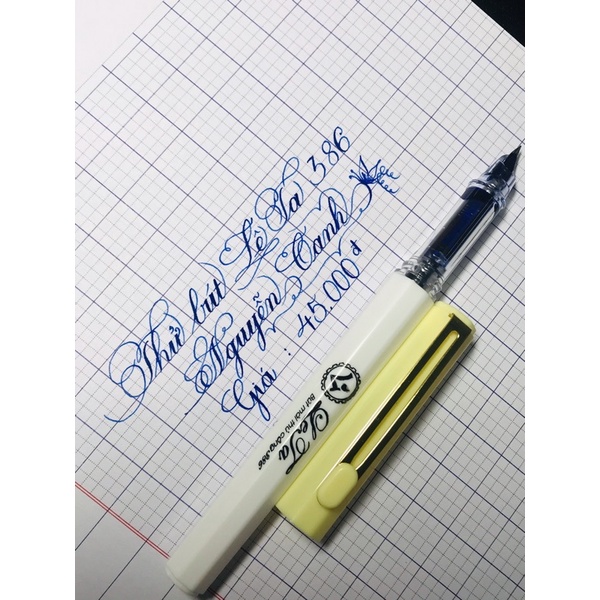 Thử bút Lê Ta 386
Nguyễn Oánh
Giá : 45.000đ
Le Ta
Bút mài thủ công 386